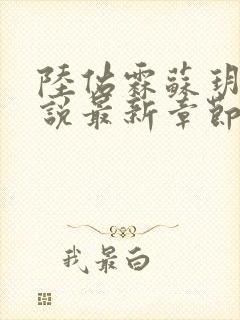 陸佔霖蘇玥
說最新章節
我最白